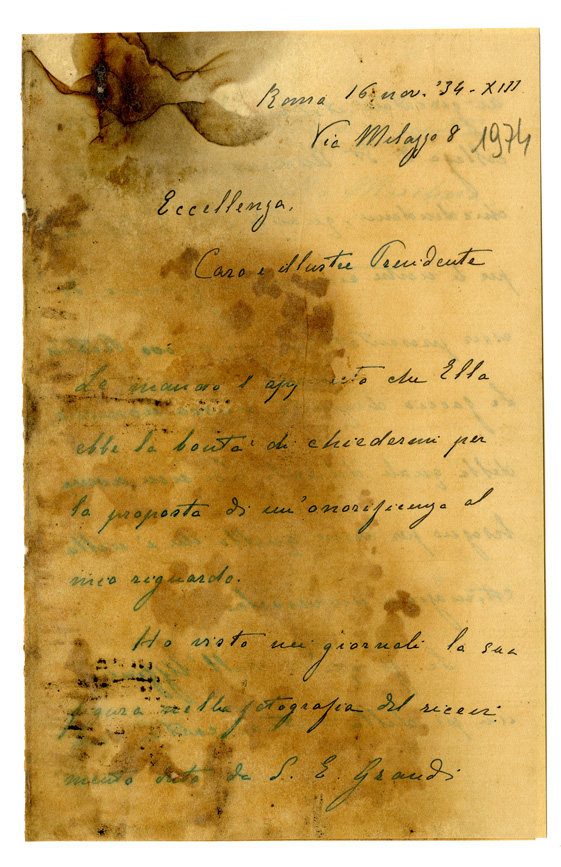 Roma 16 nov. '34-XIII
Via Milazzo 8
1974
Eccellenza,
Caro e illustre Presidente
Le mando l'appunto che Ella
ebbe la bontà di chiedermi per
la proposta di un'onorificenza al
mio riguardo.
Ho visto nei giornali la sua
figura nella fotografia del ricevi
mento dato da S. E. Grandi